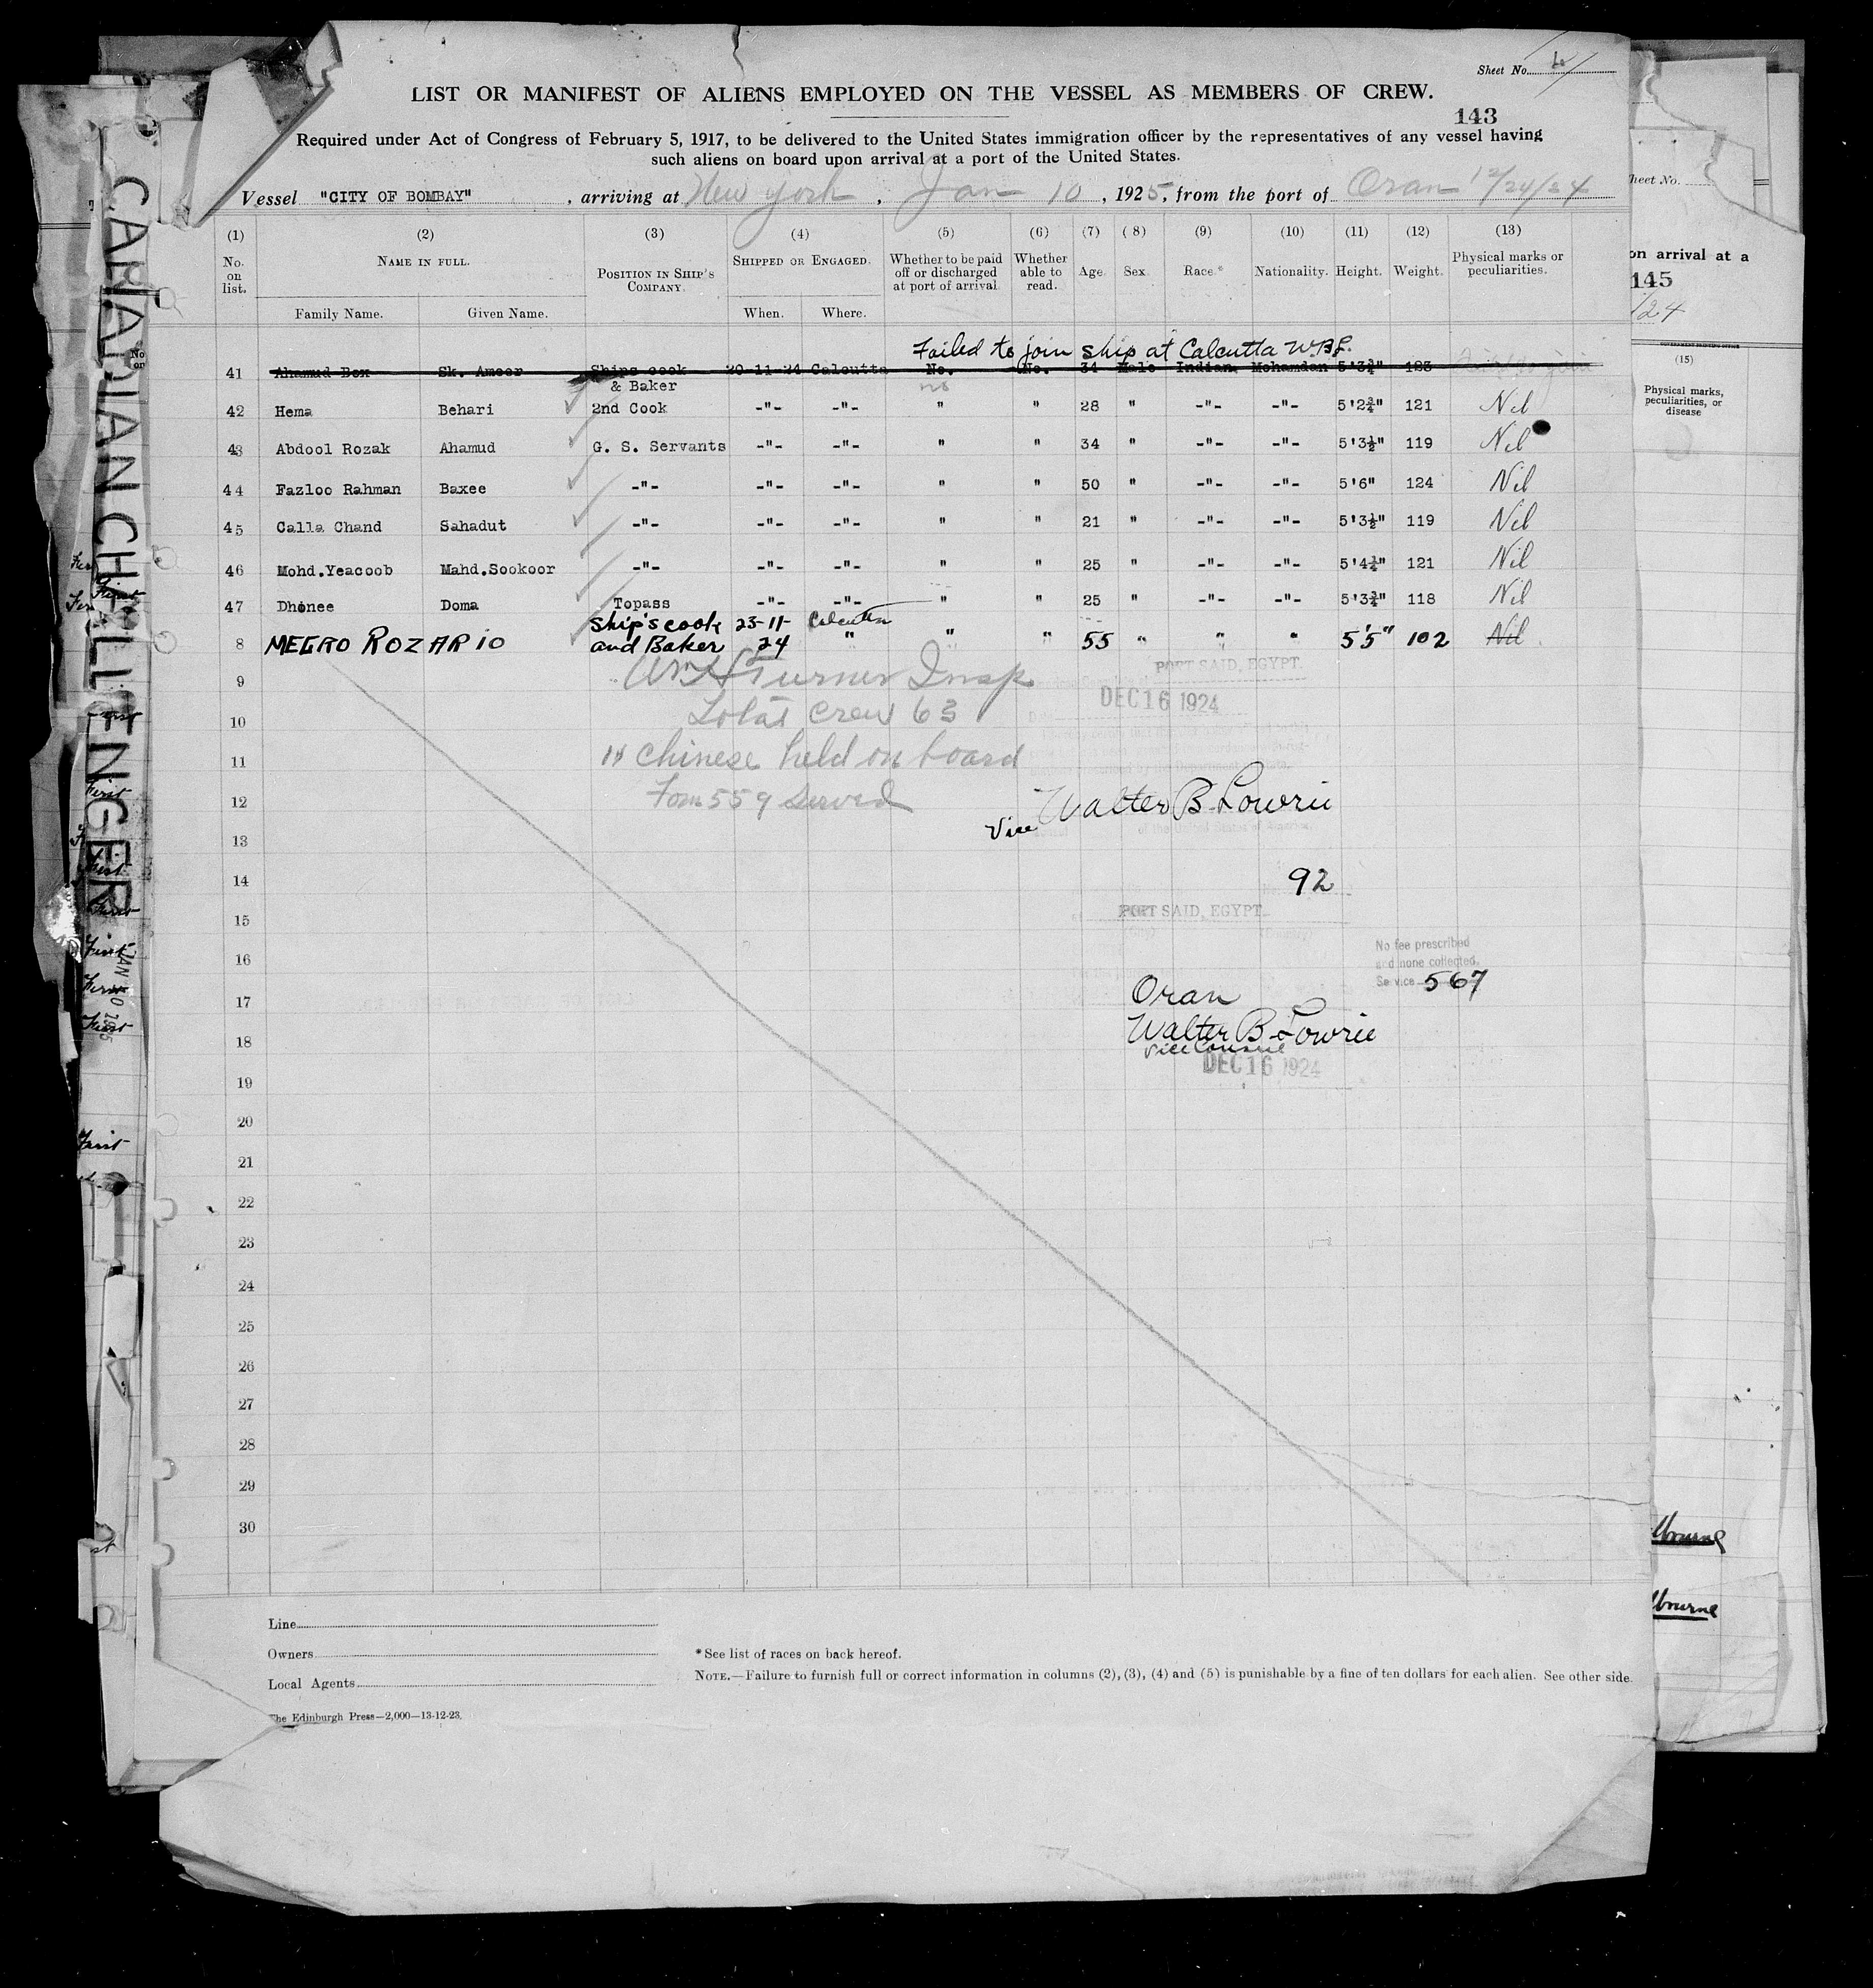 Sheet No. 4
LIST OR MANIFEST OF ALIENS EMPLOYED ON THE VESSEL AS MEMBERS OF CREW.
143
Required under Act of Congress of February 5, 1917, to be delivered to the United States immigration officer by the representatives of any vessel having
such aliens on board upon arrival at a port of the United States.
Vessel "CITY OF BOMBAY", arriving at New York, Jan 10, 1925, from the port of Oran 12/24/24
(1) (2) (3) (4) (5) (6) (7) (8) (9) (10) (11) (12) (13)
No. on list. NAME IN FULL. POSITION IN SHIP'S COMPANY. SHIPPED OR ENGAGED. Whether to be paid off or discharged at port of arrival. Whether able to read. Age. Sex. Race.* Nationality. Height. Weight. Physical marks or peculiarities.
Family Name. Given Name. When. Where.
Failed to join ship at Calcutta W.B.L.
41 Ahamud Box Sk. Ameer Ships cook 20-11-24 Calcutta No. No. 34 Male Indian Mohamdan 5'3¾" 123
& Baker no
42 Hema Behari 2nd Cook -"- -"- " " 28 " -"- -"- 5'2¾" 121 Nil
43 Abdool Rozak Ahamud G. S. Servants -"- -"- " " 34 " -"- -"- 5'3½" 119 Nil
44 Fazloo Rahman Baxee -"- -"- -"- " " 50 " -"- -"- 5'6" 124 Nil
45 Calla Chand Sahadut -"- -"- -"- " " 21 " -"- -"- 5'3½" 119 Nil
46 Mohd.Yeacoob Mahd.Sookoor -"- -"- -"- " " 25 " -"- -"- 5'4¼" 121 Nil
47 Dhonee Doma Topass -"- -"- " " 25 " -"- -"- 5'3¾" 118 Nil
Ship's cook 23-11- Calcutta
8 MEGRO ROZARIO and Baker 24 " " " 55 " " " 5'5" 102 Nil
9 Wm H Turner Insp
PORT SAID, EGYPT.
DEC 16 1924
10 Total crew 63
11 Chinese held on board
12 Form 559 Served
Walter B Lowrie
Vice
13
14
92
15
PORT SAID, EGYPT.
16
No fee prescribed
and none collected.
Service 567
17
Oran
18
Walter B Lowrie
Vice Consul
DEC 16 1924
19
20
21
22
23
24
25
26
27
28
29
30
Line
Owners
Local Agents
*See list of races on back hereof.
NOTE.—Failure to furnish full or correct information in columns (2), (3), (4) and (5) is punishable by a fine of ten dollars for each alien. See other side.
The Edinburgh Press—2,000—13-12-23.
CANADIAN CHALLENGER
JAN 10 1925
No
on
First
First
First
First
First
First
First
heet No.
on arrival at a
145
/24
(15)
Physical marks,
peculiarities, or
disease
lbourne
lbourne